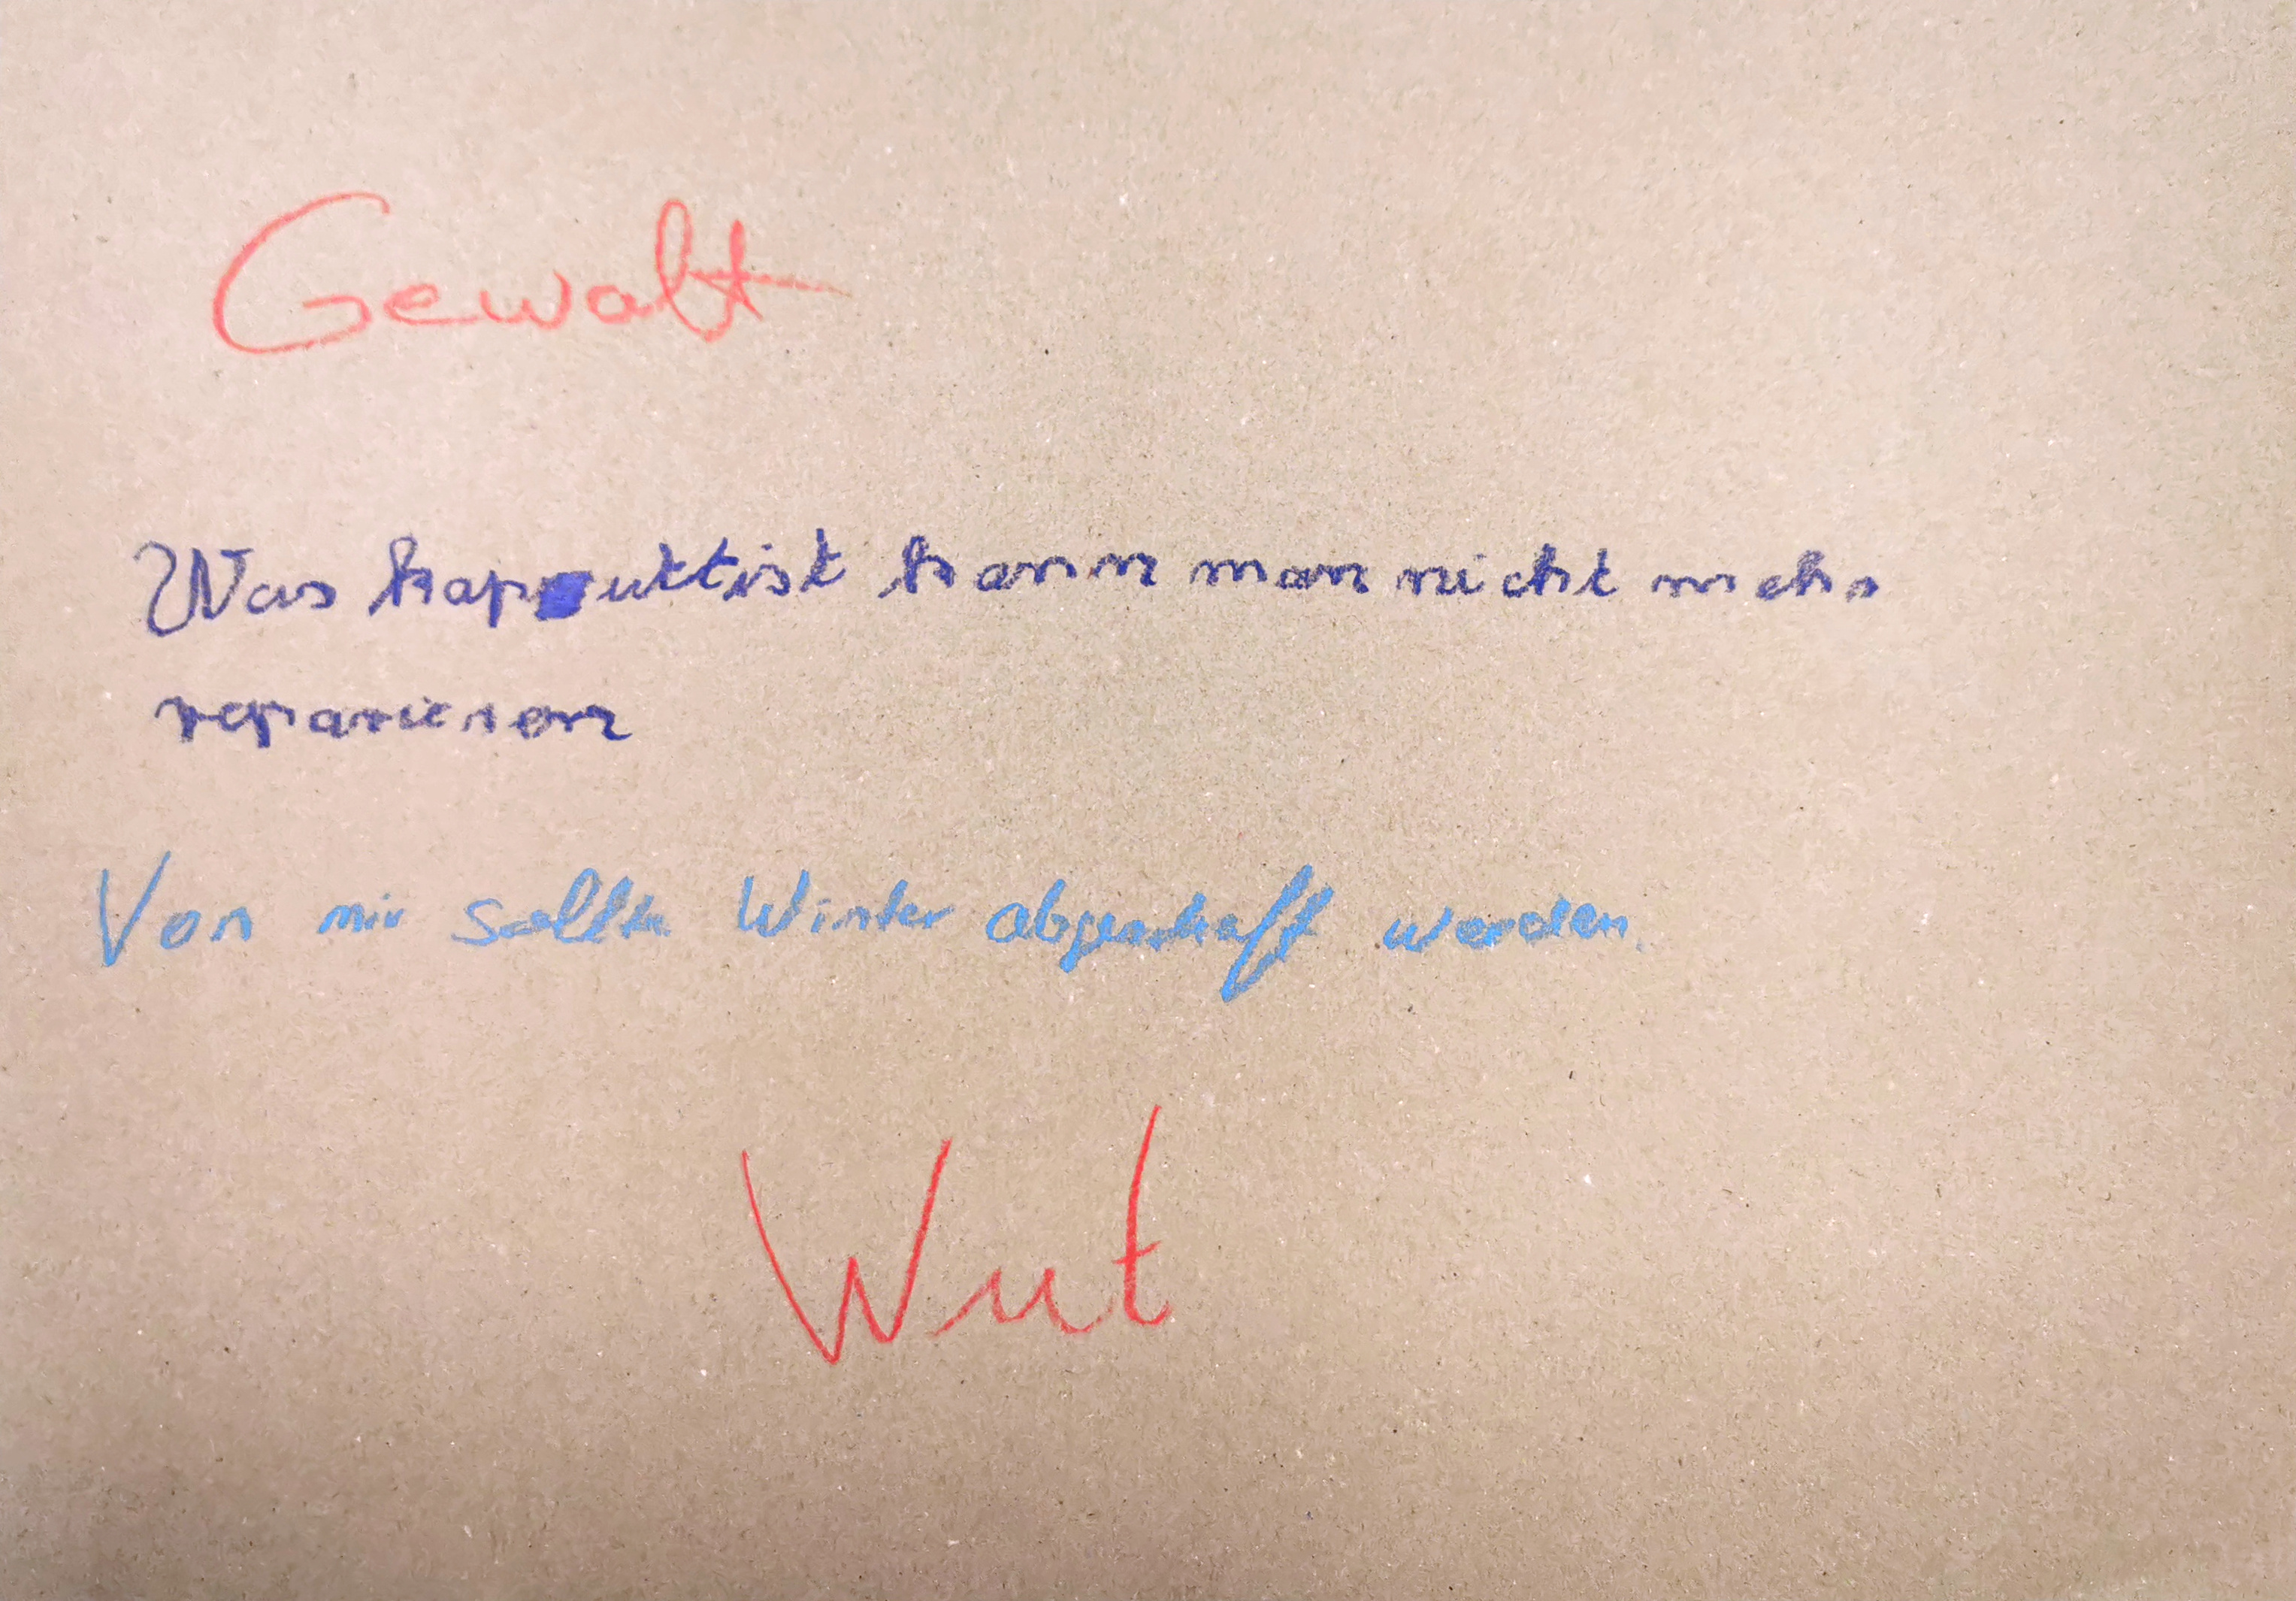 Gewalt
Was kaputt ist kann man nicht mehr
reparieren
Von mir sollte Winter abgeschafft werden.
Wut